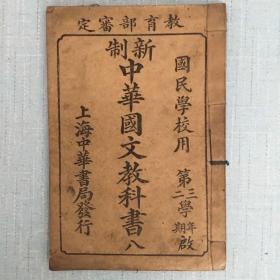 教育部審定
國民學校用 第三學年
第二學期 啟
新制
中華國文教科書 八
上海中華書局發行